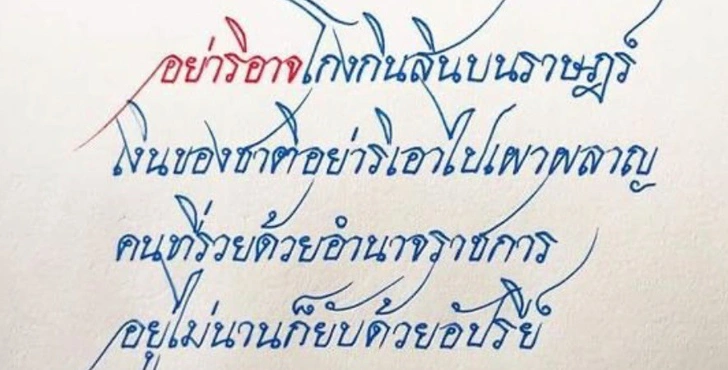 อย่าริอาจโกงกินสินบนราษฎร์
เงินของชาติอย่าริเอาไปเผาผลาญ
คนที่รวยด้วยอำนาจราชการ
อยู่ไม่นานก็ยับด้วยอัปรีย์